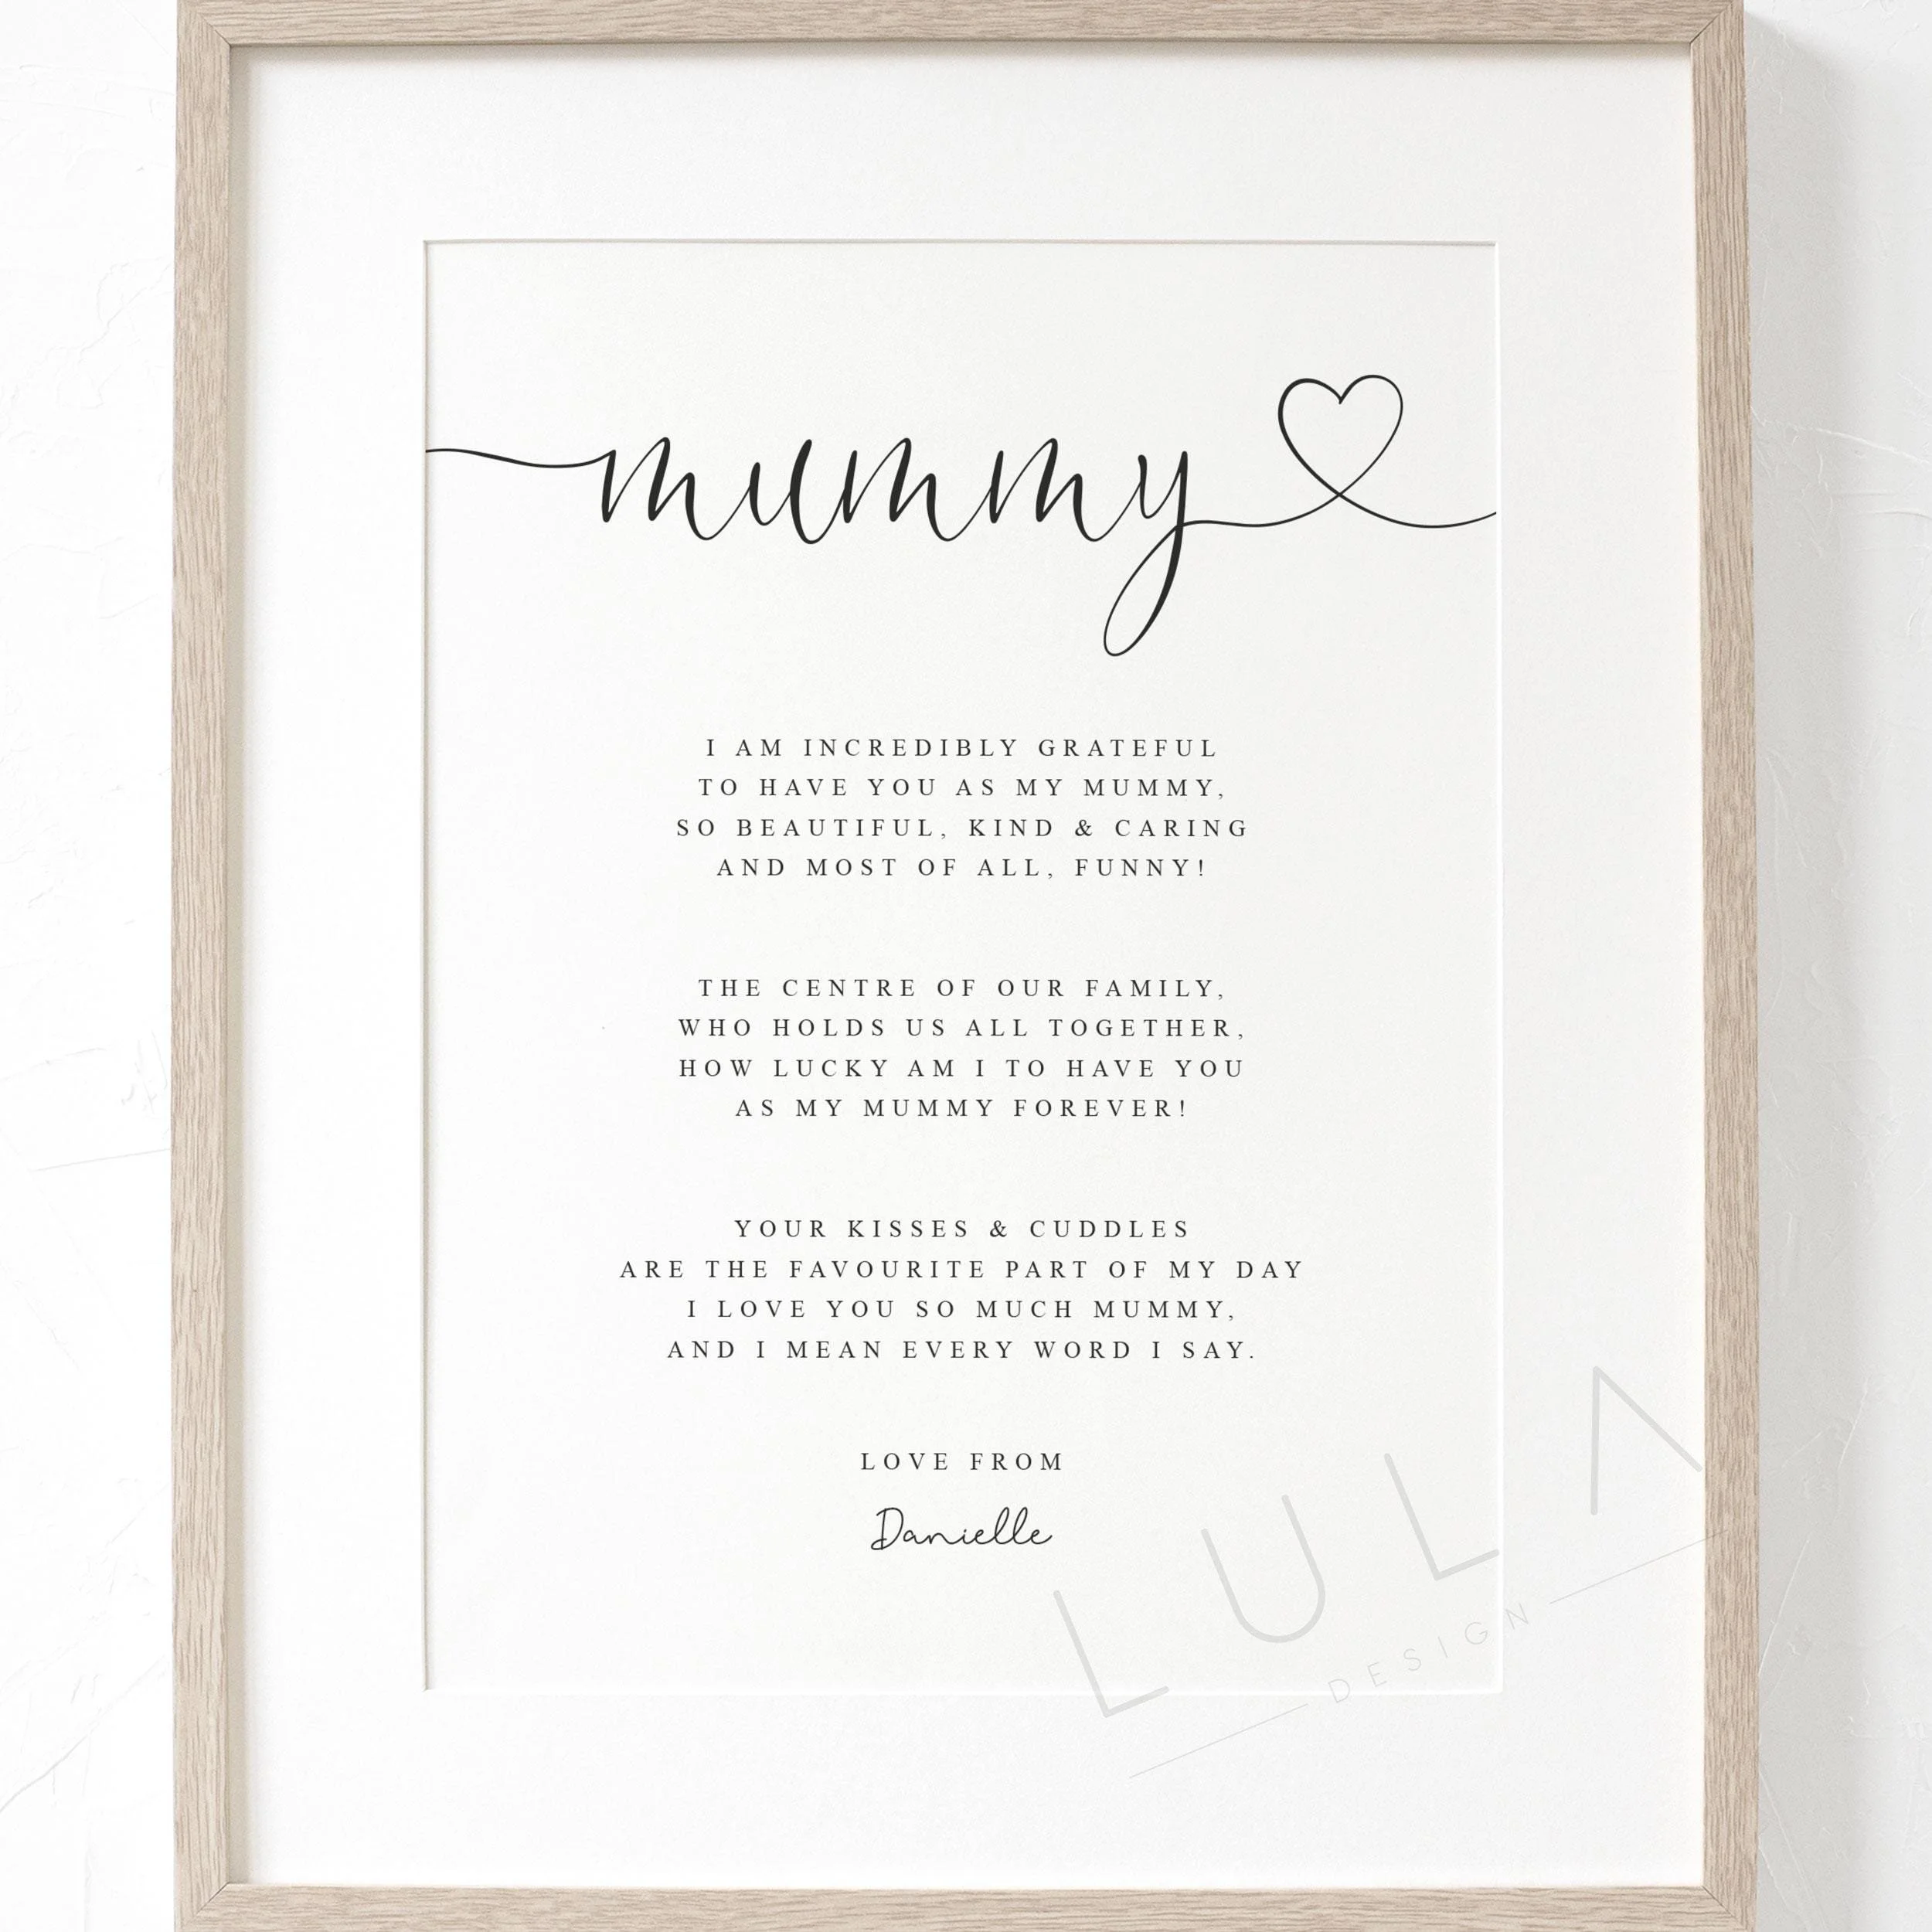 mummy
I AM INCREDIBLY GRATEFUL
TO HAVE YOU AS MY MUMMY,
SO BEAUTIFUL, KIND & CARING
AND MOST OF ALL, FUNNY!
THE CENTRE OF OUR FAMILY,
WHO HOLDS US ALL TOGETHER,
HOW LUCKY AM I TO HAVE YOU
AS MY MUMMY FOREVER!
YOUR KISSES & CUDDLES
ARE THE FAVOURITE PART OF MY DAY
I LOVE YOU SO MUCH MUMMY,
AND I MEAN EVERY WORD I SAY.
LOVE FROM
Danielle
LULA
DESIGN